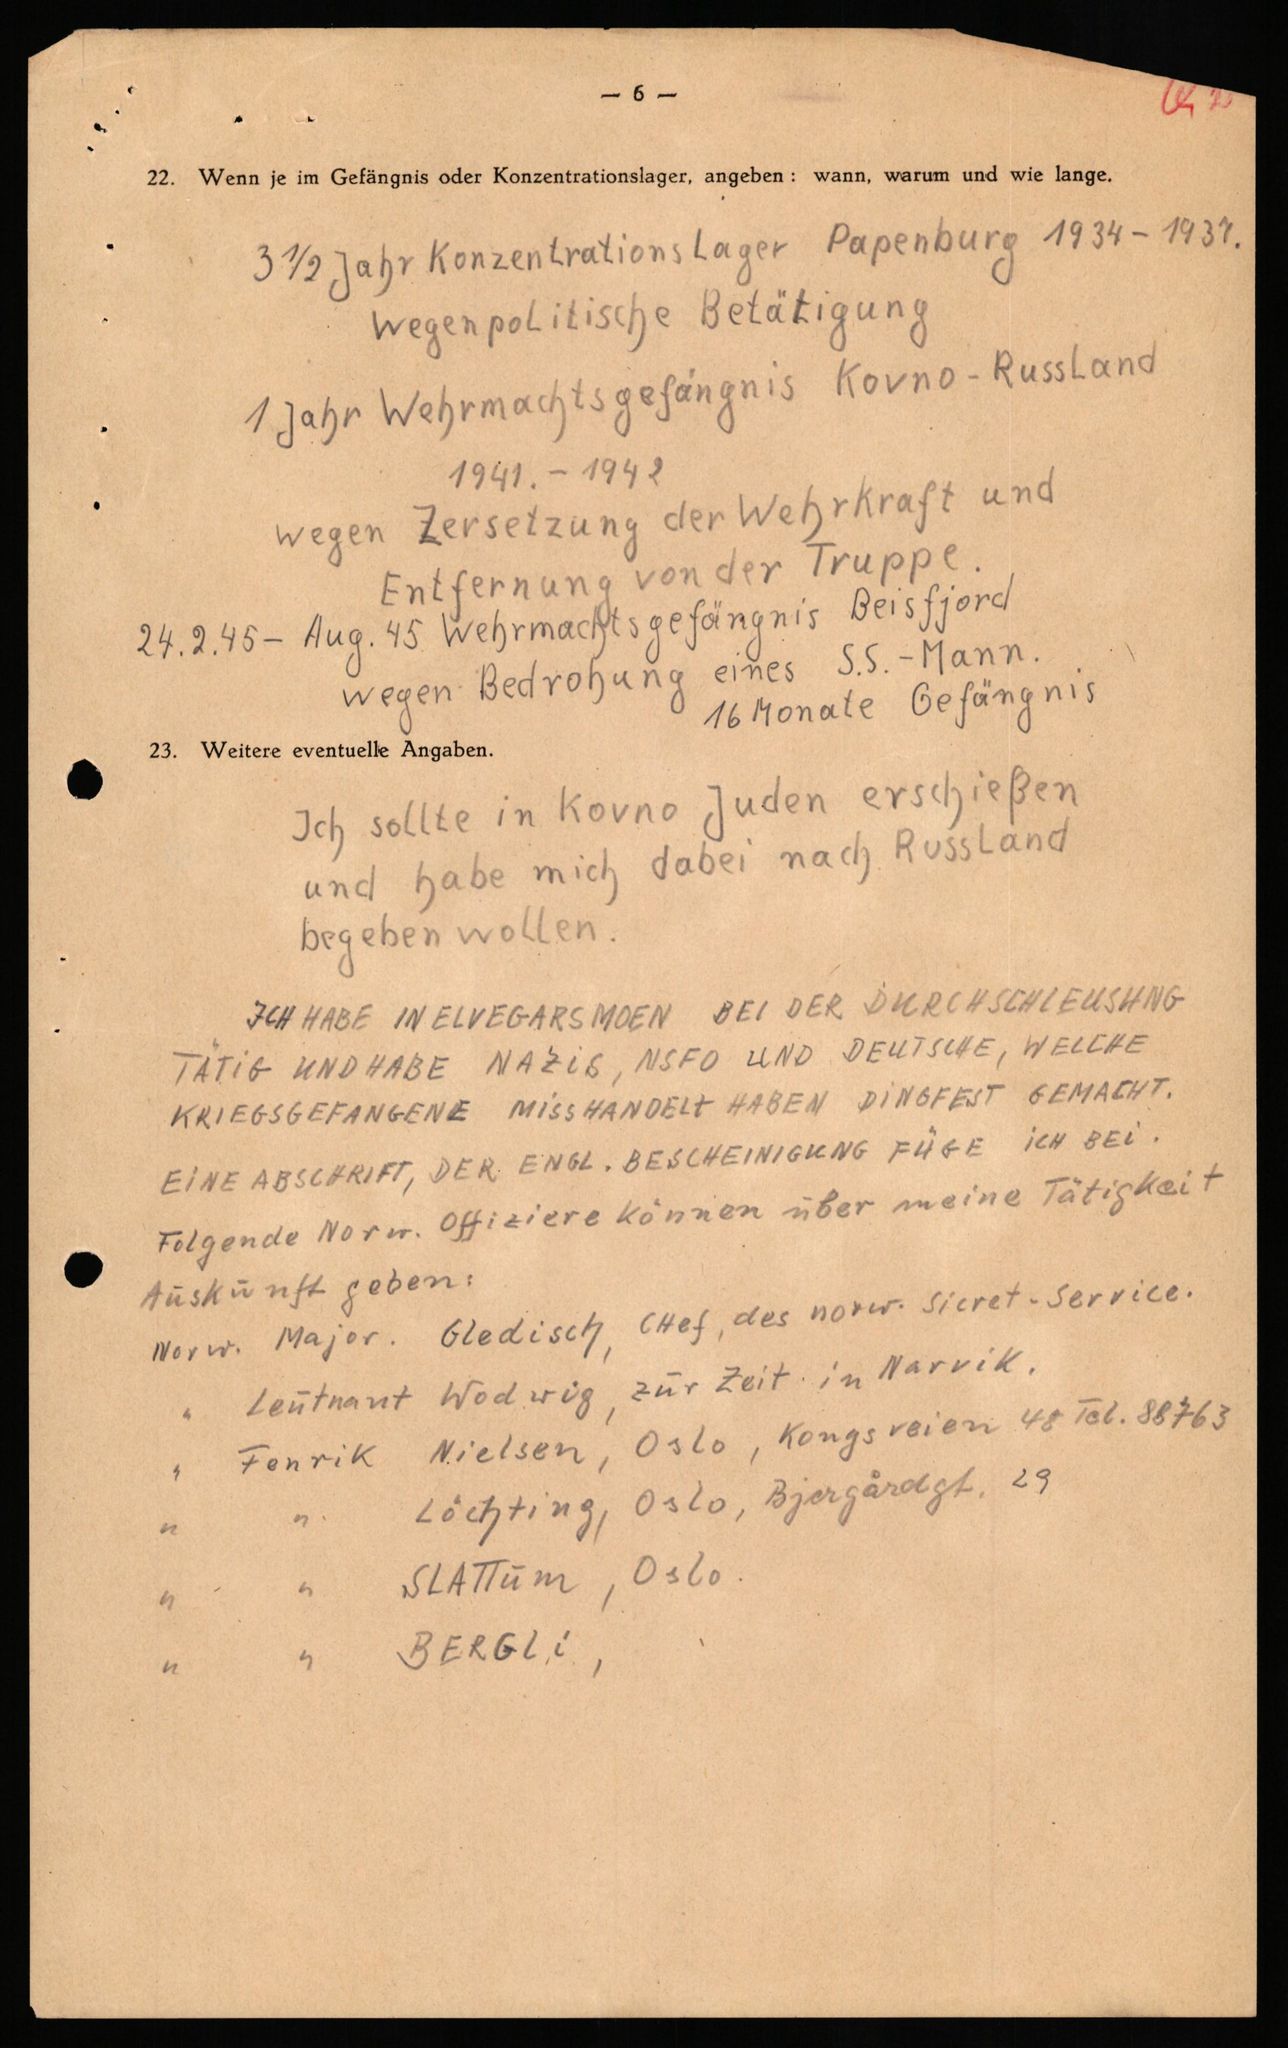 — 6 —
22. Wenn je im Gefängnis oder Konzentrationslager, angeben: wann, warum und wie lange.
3 1/2 Jahr Konzentrationslager Papenburg 1934 - 1937.
wegen politische Betätigung
1 Jahr Wehrmachtsgefängnis Kovno - Russland
1941. - 1942
wegen Zersetzung der Wehrkraft und
Entfernung von der Truppe.
24.2.45 - Aug. 45 Wehrmachtsgefängnis Beisfjord
wegen Bedrohung eines S.S. - Mann.
16 Monate Gefängnis
23. Weitere eventuelle Angaben.
Ich sollte in Kovno Juden erschießen
und habe mich dabei nach Russland
begeben wollen.
ICH HABE IN ELVEGARSMOEN BEI DER DURCHSCHLEUSUNG
TÄTIG UND HABE NAZIS, NSFO UND DEUTSCHE, WELCHE
KRIEGSGEFANGENE MISSHANDELT HABEN DINGFEST GEMACHT.
EINE ABSCHRIFT, DER ENGL. BESCHEINIGUNG FÜGE ICH BEI.
Folgende Norw. Offiziere können über meine Tätigkeit
Auskunft geben:
Norw. Major. Gledisch, Chef, des norw. Sicret-Service.
" Leutnant Wodwig, zur Zeit in Narvik.
" Fenrik Nielsen, Oslo, Kongsveien 48 Tel. 88763
" " Löchting, Oslo, Bjergårdgt. 29
" " SLATTUM, Oslo.
" " BERGLI,